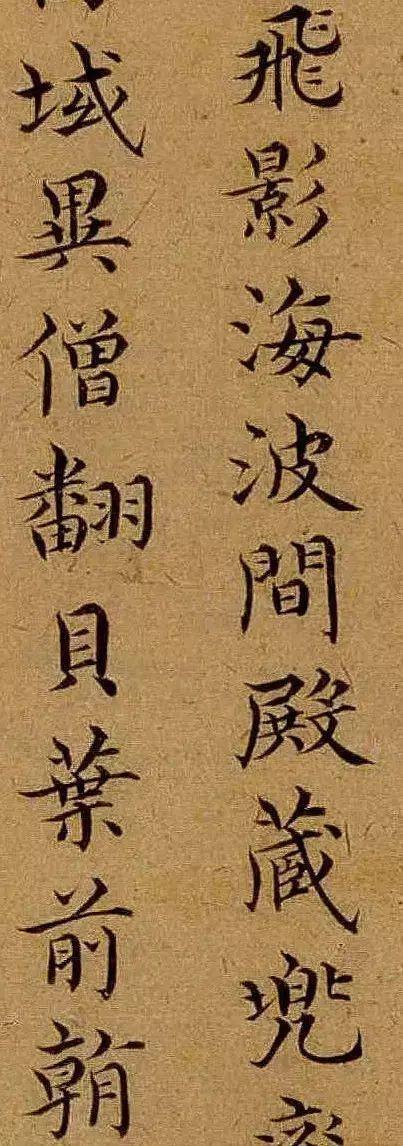 飛影海波間殿藏兠率
域異僧翻貝葉前朝